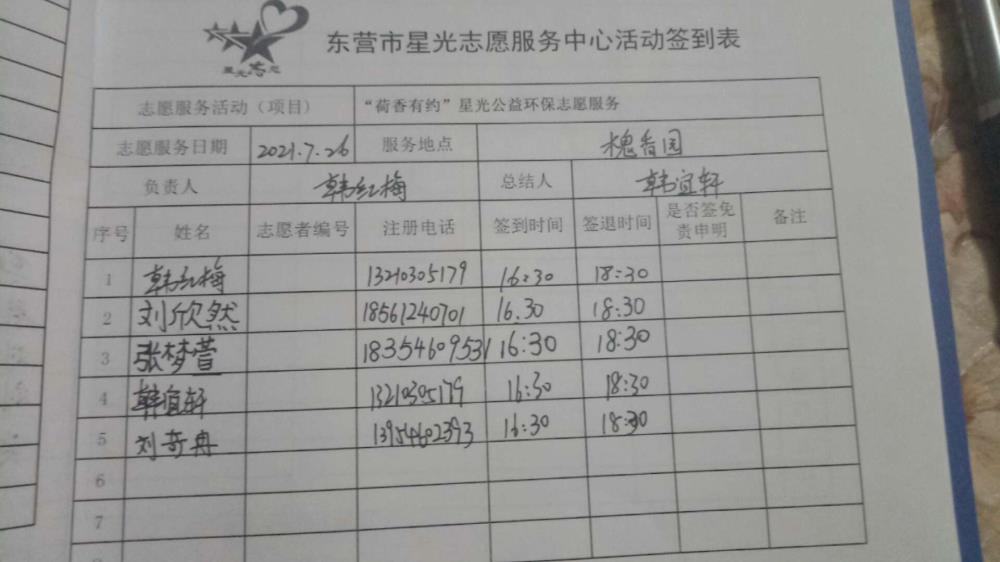 东营市星光志愿服务中心活动签到表
志愿服务活动（项目） “荷香有约”星光公益环保志愿服务
志愿服务日期 2021.7.26 服务地点 槐香园
负责人 韩红梅 总结人 韩宜轩
序号 姓名 志愿者编号 注册电话 签到时间 签退时间 是否签免责申明 备注
1 韩红梅 13210305179 16:30 18:30
2 刘欣然 18561240701 16.30 18:30
3 张梦萱 18354609531 16:30 18:30
4 韩宜轩 13210305179 16:30 18:30
5 刘奇冉 13954602393 16:30 18:30
6
7